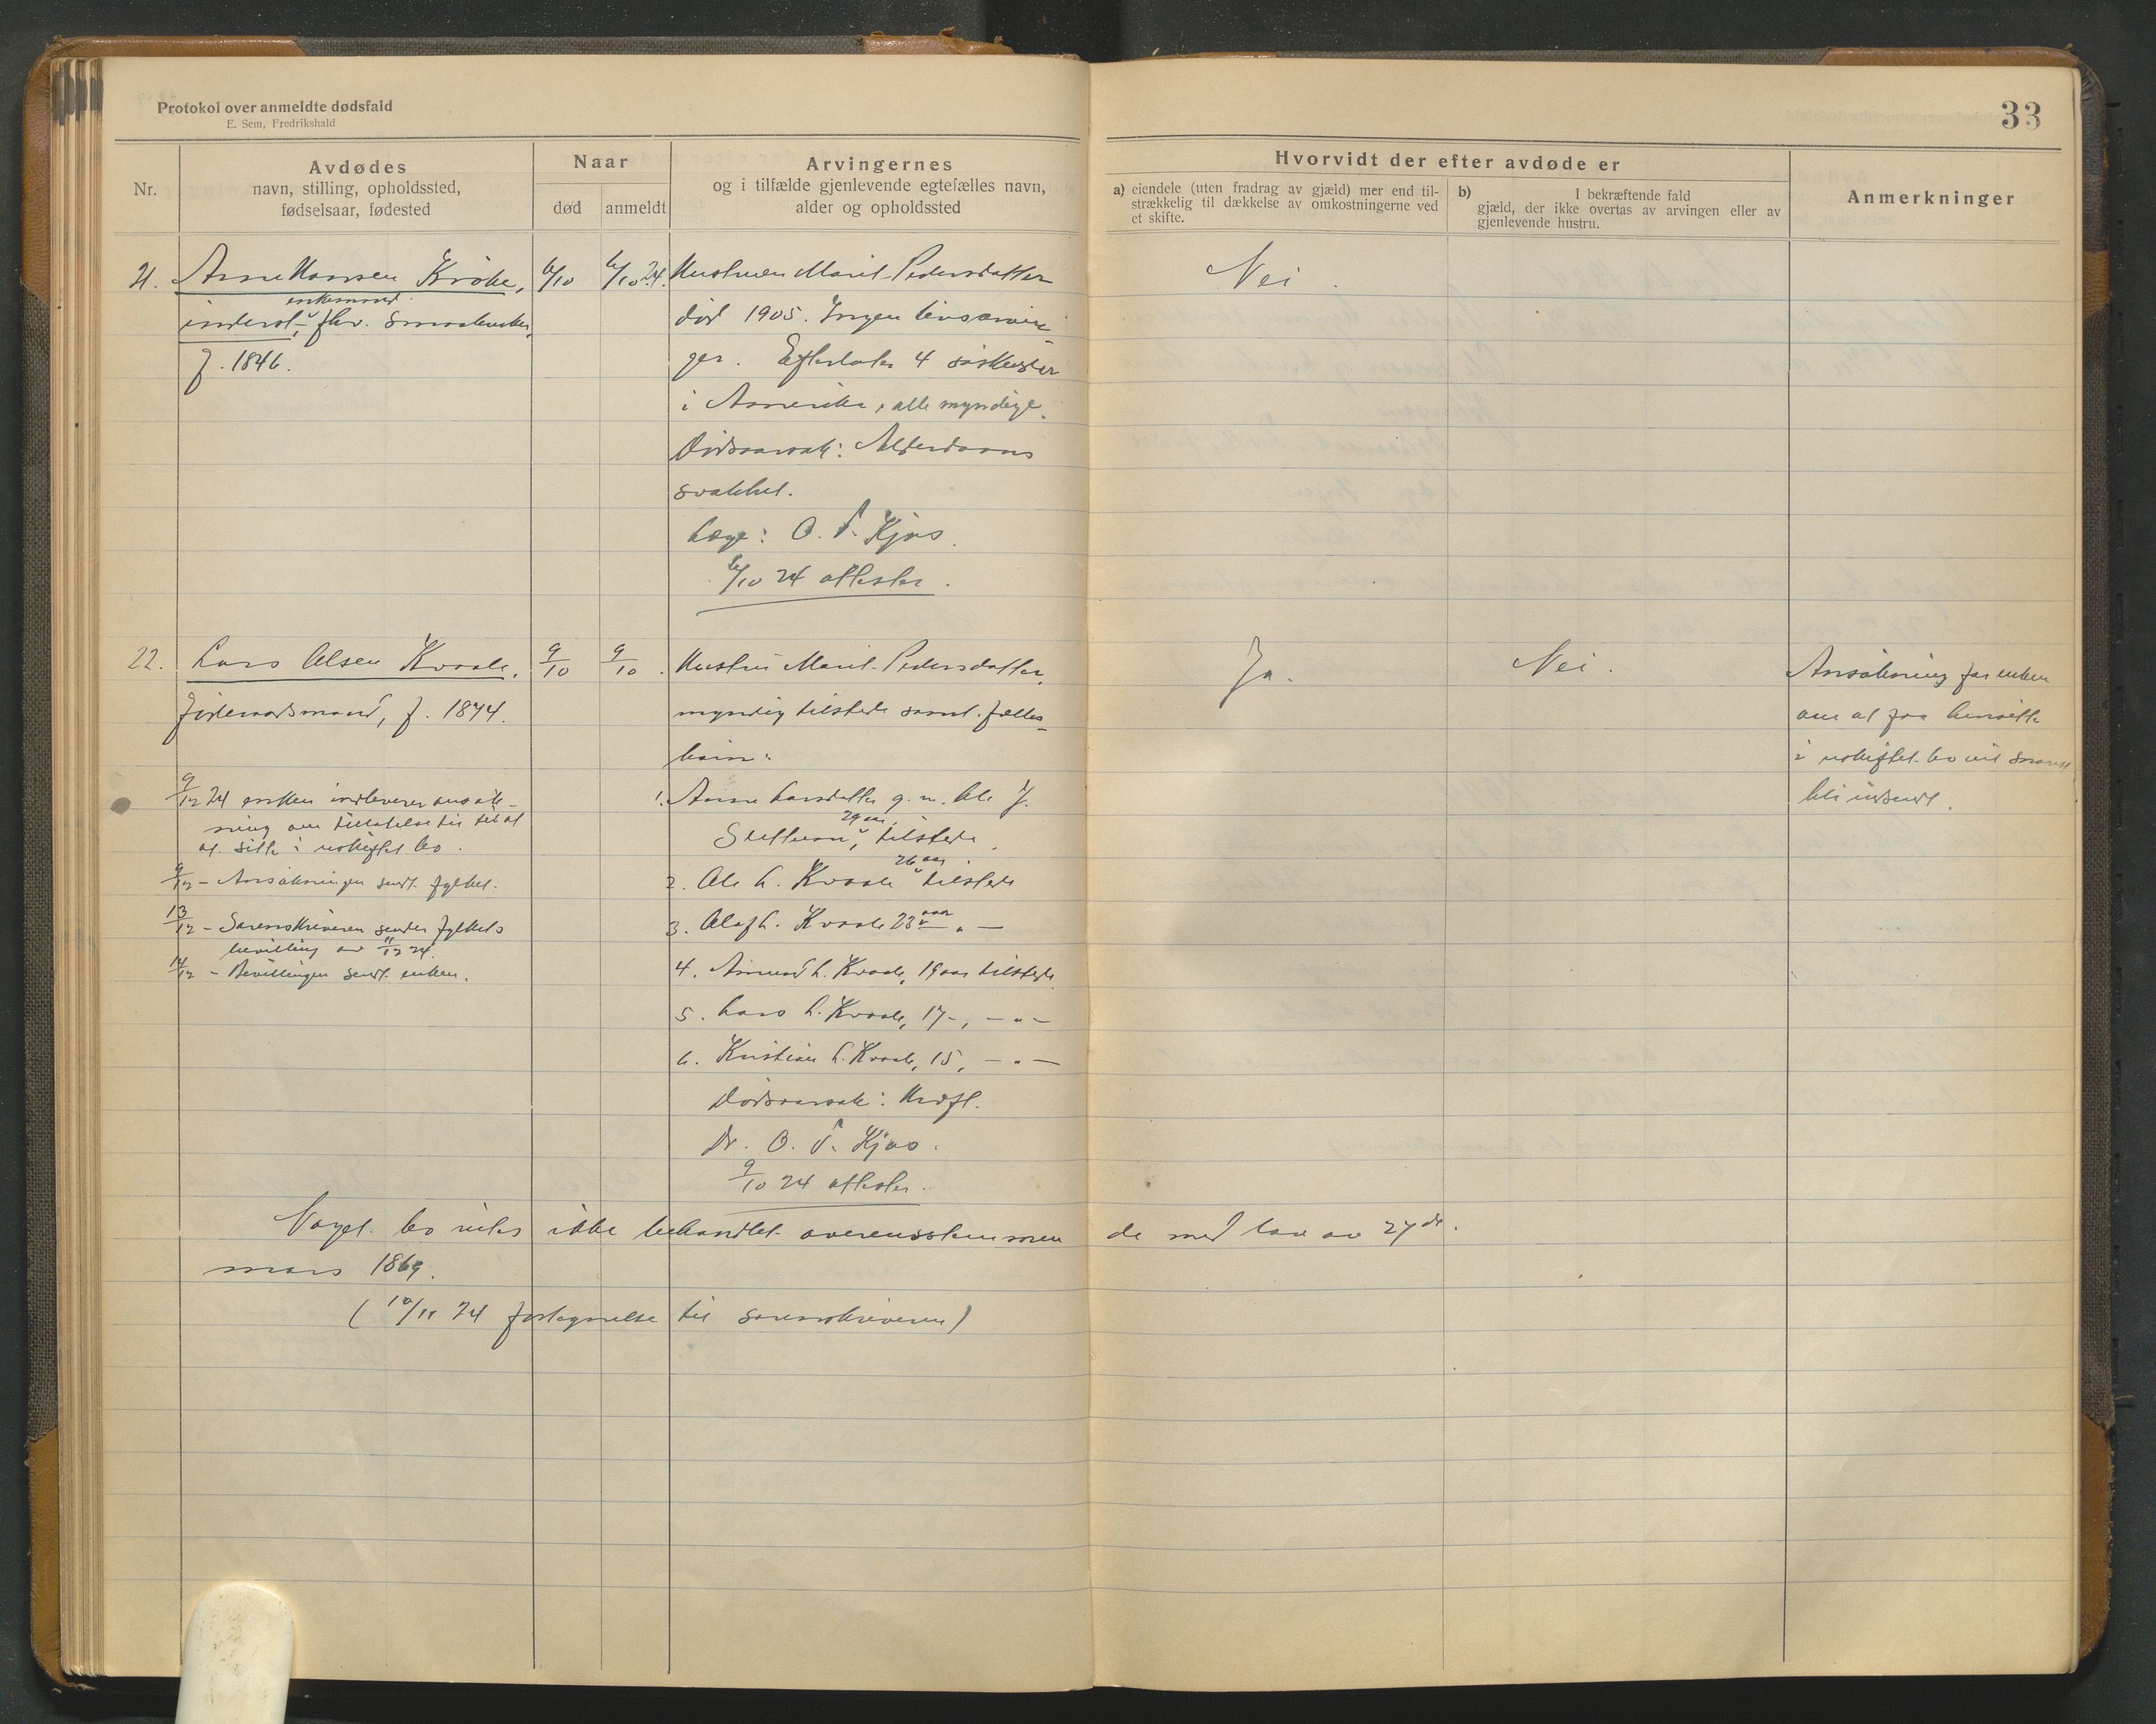 Protokol over anmeldte dødsfald
E. Sem, Fredrikshald
33
Nr.
Avdødes
navn, stilling, opholdssted,
fødselsaar, fødested
Naar
død
anmeldt
Arvingernes
og i tilfælde gjenlevende egtefælles navn,
alder og opholdssted
Hvorvidt der efter avdøde er
a) eiendele (uten fradrag av gjæld) mer end til-
strækkelig til dækkelse av omkostningerne ved
et skifte.
b) I bekræftende fald
gjæld, der ikke overtas av arvingen eller av
gjenlevende hustru.
Anmerkninger
21. Arne Hansen Kroke,
enkemand
inderst, fhv. smaabruker,
f. 1846.
6/10
6/10 24.
Hustruen Marit Pedersdatter
død 1905. Ingen livsarvin-
ger. Efterlater 4 søskender
i Amerika, alle myndige.
Dødsaarsak: Alderdoms
svakhet.
Læge: O. T. Kjos.
6/10 24 attester.
Nei.
22. Lars Olsen Kvaale,
jordbruksmand, f. 1874.
9/10
9/10.
Hustru Marit Pedersdatter,
myndig tilstede samt fælles-
barn:
1. Anne Larsdatter g. m. Ole J.
29 aar
tilstede
2. Ole L. Kvaale 26 aar tilstede
3. Olaf L. Kvaale 23 aar " —
4. Amund L. Kvaale, 19 aar tilstede
5. Lars L. Kvaale, 17 -, - " -
6. Kristian L. Kvaale, 15, - " -
Dødsaarsak:
Dr. O. T. Kjos.
9/10 24 attester.
Ja.
Nei.
Ansøkning fra enken
om at faa hensitte
i uskiftet bo vil snarest
bli indsendt.
9/12 24 enken indleverer ansøk-
ning om tillatelse til til at
at sitte i uskiftet bo.
9/12 - Ansøkningen sendt fylket.
13/12 - Sorenskriveren sender fylkets
bevilling av 11/12 24.
14/12 - Bevillingen sendt enken.
Noget bo vites ikke behandlet overensstemmen de med lov av 27de
mars 1869.
(10/11 24 fortegnelse til sorenskriveren)